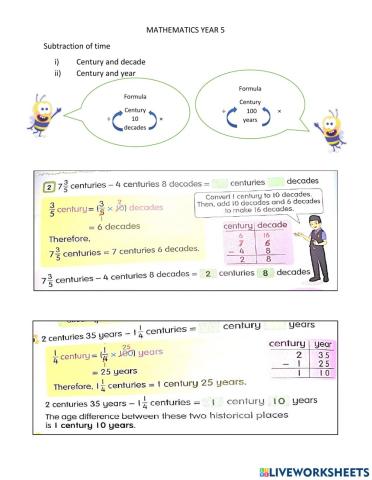 MATHEMATICS YEAR 5
Subtraction of time
i) Century and decade
ii) Century and year
Formula
Century
÷ 10 ×
decades
Formula
Century
÷ 100 ×
years
2 7 3/5 centuries – 4 centuries 8 decades = centuries decades
Convert 1 century to 10 decades.
Then, add 10 decades and 6 decades
to make 16 decades.
3/5 century = (3/5 × 10) decades
2
1
= 6 decades
Therefore,
7 3/5 centuries = 7 centuries 6 decades.
century decade
6 16
7 6
– 4 8
2 8
7 3/5 centuries – 4 centuries 8 decades = 2 centuries 8 decades
2 centuries 35 years – 1 1/4 centuries = century years
25
1/4 century = (1/4 × 100) years
1
= 25 years
Therefore, 1 1/4 centuries = 1 century 25 years.
century year
2 35
– 1 25
1 10
2 centuries 35 years – 1 1/4 centuries = 1 century 10 years
The age difference between these two historical places
is 1 century 10 years.
LIVEWORKSHEETS